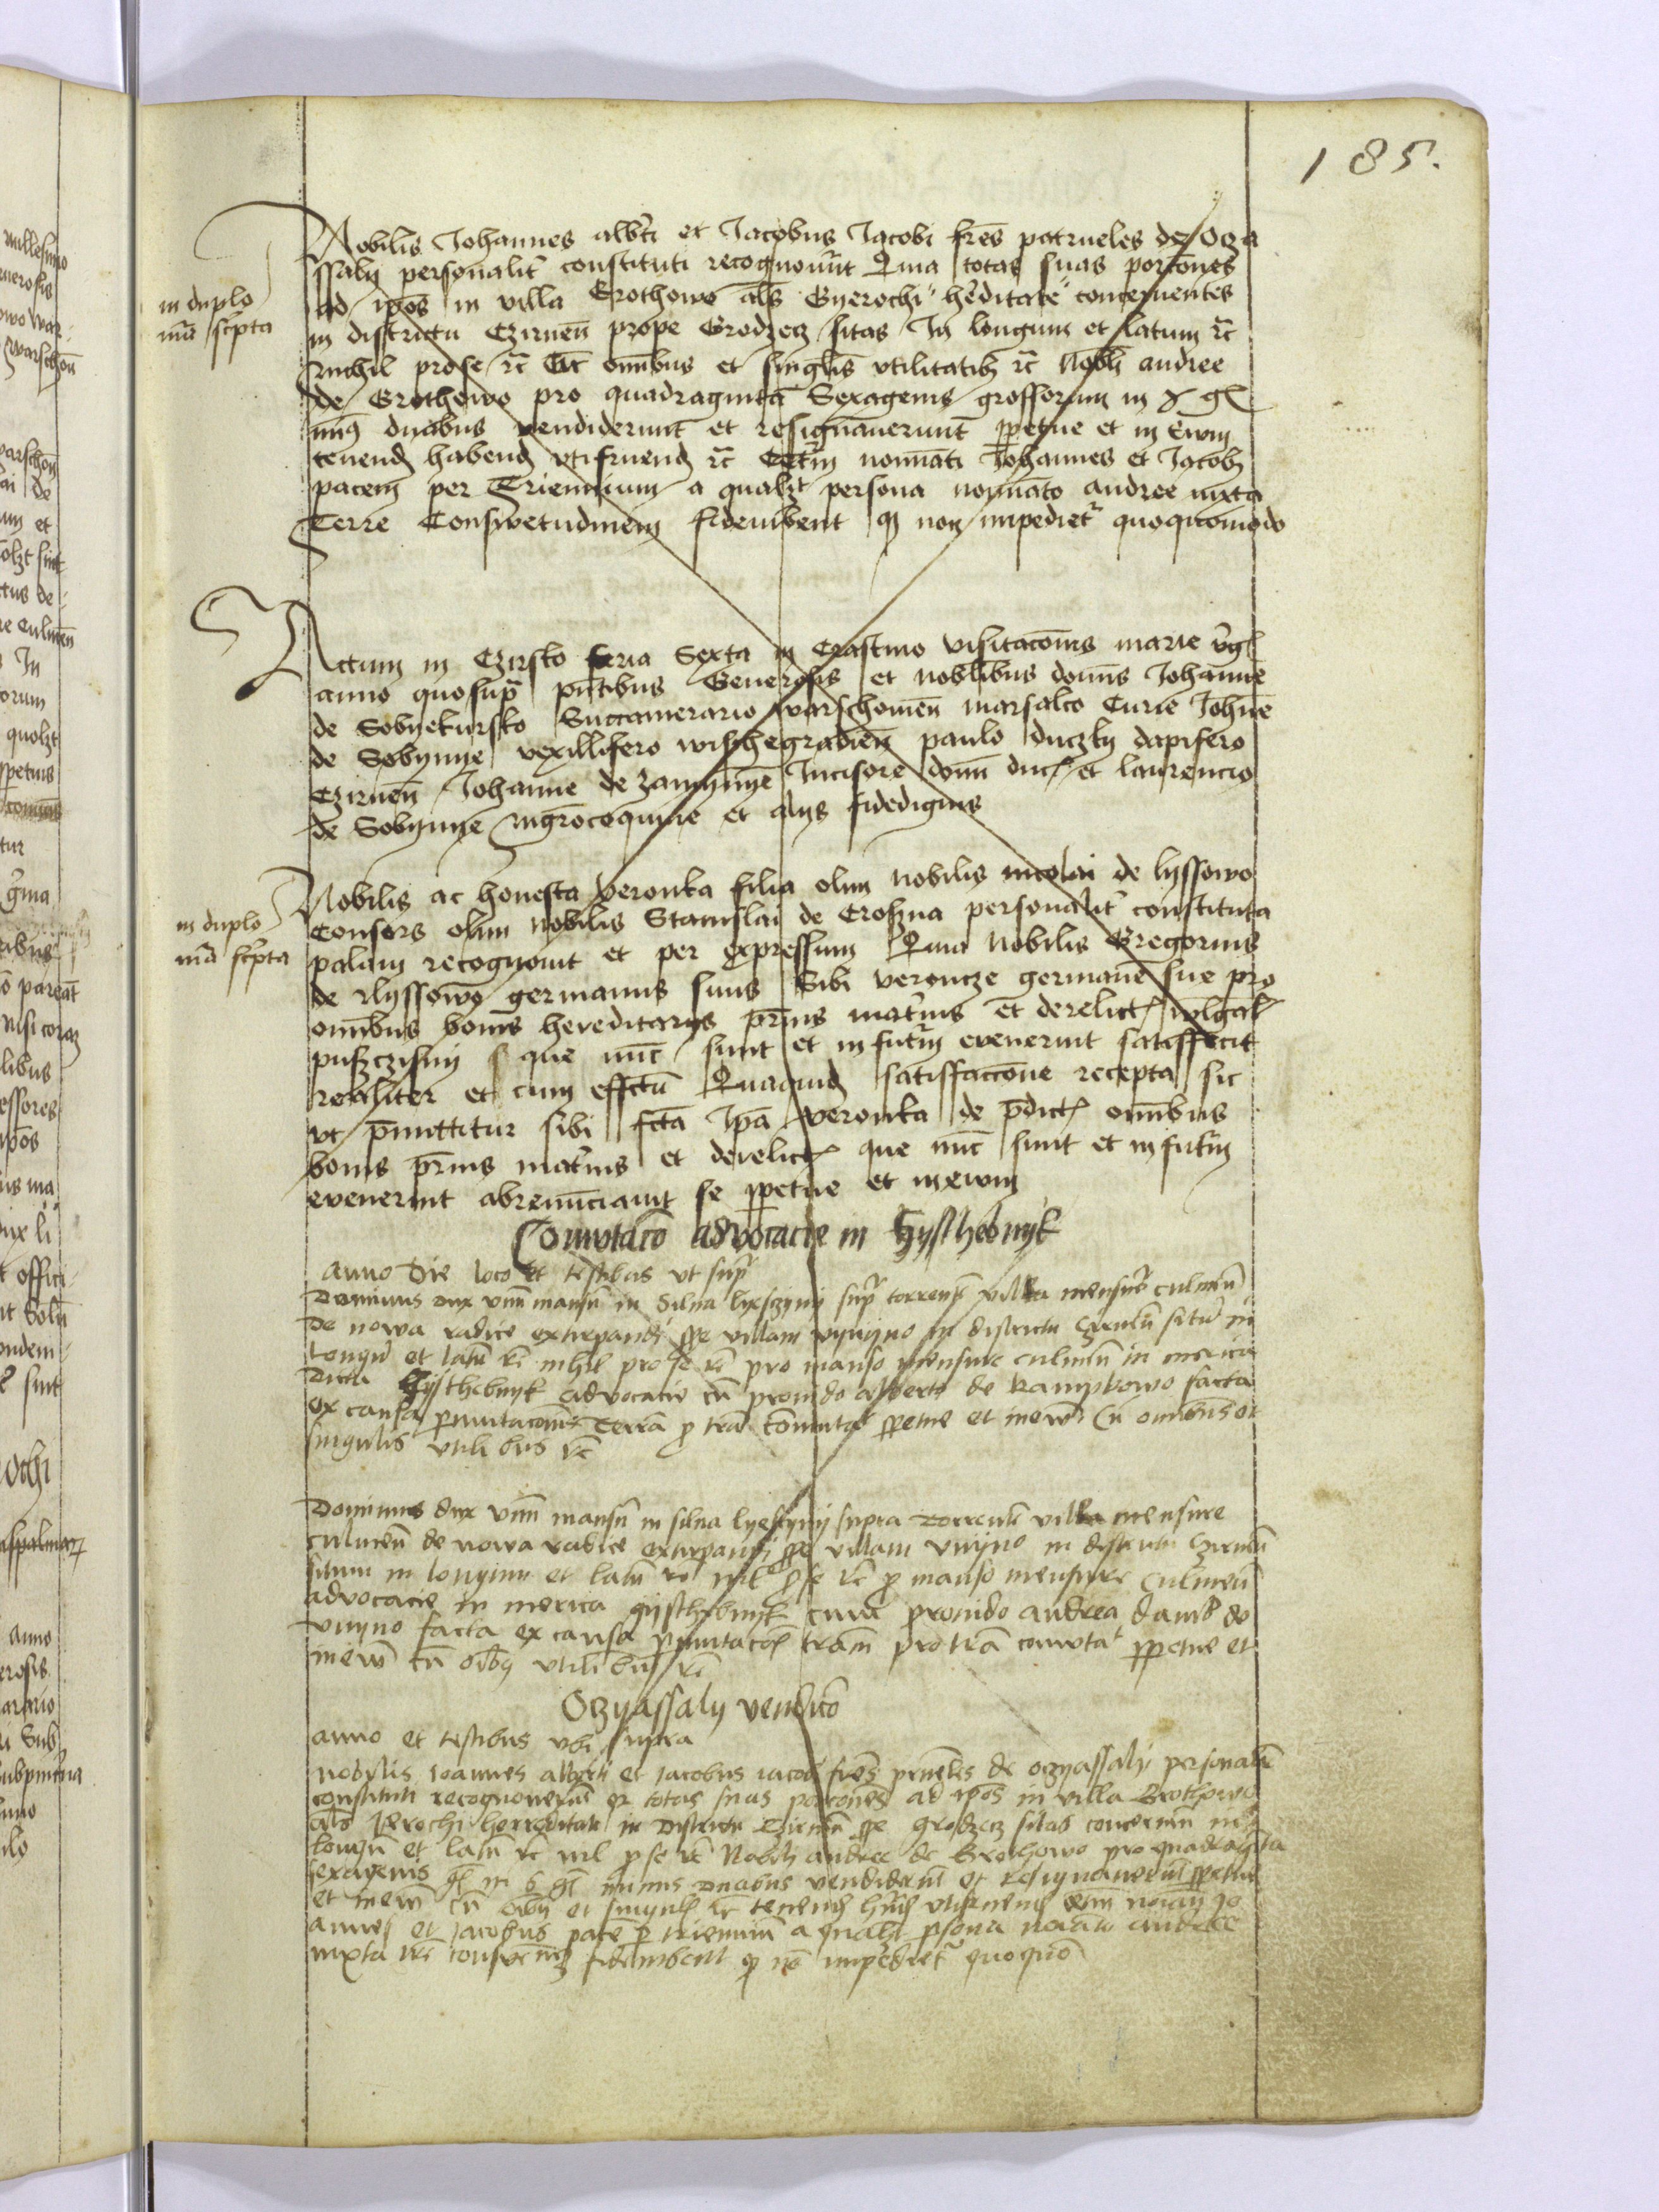 185.
Nobilis Johannes alberti et Jacobus Jacobi fres patrueles de Ocza
ssaly personalit constituti recognoverut Quia totas suas portones
ad ipos in villa Grothowo als Gyerochi hereditate concernentes
in districtu Czirnen prope Grodzecz sitas In longum et latum rc
nichil pro se rc Cu omibus et singulis vtilitatib rc Nobli andree
de Grothowo pro quadraginta Sexagenis grossorum in gl
duabus vendiderunt et resignaverunt ppetue et in Ewm
tenend habend vtifruend rc Ceterm nomnati Johannes et Jacob
pacem per Triennium a qualzt persona nomnato andree iuxta
Terre Conswetudinem fideiubent q non impedietr quoquomodo
in duplo
ma scripta
Actum in Czirsko feria Sexta in Crastino visitacois marie vgl
anno quo supra pntibus Generosis et noblibus domis Johanne
de Sobyekursko Succamerario warschowien marsalco Curie Johne
de Sobynye vexillifero wischegradien paulo duczky dapifero
Czirnen Johanne de zamynye Incisore domi duc et laurencio
de Sobynye mgrocoquine et alys fidedignis
Nobilis ac honesta veronka filia olim nobilis nicolai de lyssowo
Consors olim nobilis Stanislai de Croszna personalit constituta
palam recognovit et per expressum Quia nobilis Gregorius
de lyssowo germanus suus Sibi veroncze germane sue pro
omibus bonis hereditarys prnis matrnis et derelict wlgal
puszczisny que nuc sunt et in futrm evenerint satisffecit
realiter et cum effctu Quaquid satisffaccone recepta sic
vt pmittitur sibi fcta Ipa veronka de pdict omibus
bonis prnis matrnis et derelict que nuc sunt et in futrm
evenerint abrenucciavit se ppetue et in ewm
in duplo
ma scripta
Comutaco advocacie in Gysthebnyk
Anno die loco et testibus vt supr
Dominus dux vnu mansu in silua lyesczyny supr torrens villa mensure culmen
De nowa radice extirpandi ppe villam vynyno in districtu Czirnen situ in
longu et latu rc nihil pro se rc pro manso mensure culmen in merica
Dicta Gysthebnyk advocacie cu provido alberto de kampkowo facta
ex causa pmutacois terra p tra comutat ppetue et inewm Cu omibus et
singulis vtilibus rc
Dominus dux vnu mansu in silua lyesczyny supra torrentu villa mensure
culmen de nowa radice extirpandi ppe villam vnyno in districtu Czirnen
situm in longum et latu rc nil p se rc p manso mensure culmen
advocacie in merica gysthebnyk cum provido andrea de
vnyno facta ex causa pmutacois tram pro tra comutat ppetue et
inewm cu oibus vtilibus rc
Oczyassaly vendico
Anno et testibus vbi supra
Nobilis Joannes alberti et Jacobus iacobi fres prueles de oczyassaly personalit
constituti recognoverut q totas suas porcones ad ipos in villa Grothowo
als Jerochi herreditate in districtu Czirnen ppe grodzecz sitas concernen in
longu et latu rc nil p se rc Nobili andree de Grothowo pro quadraginta
sexagenis gl in gl minus duabus vendiderut et resignaverut ppetue
et inewm cu oibus et singulis rc tenend hnd vtifruend nomati Jo
annes et Jacobus pace p trienniu a qualzt psona noiato andree
iuxta tre consuetud fideiubent q no impedietr quoquo